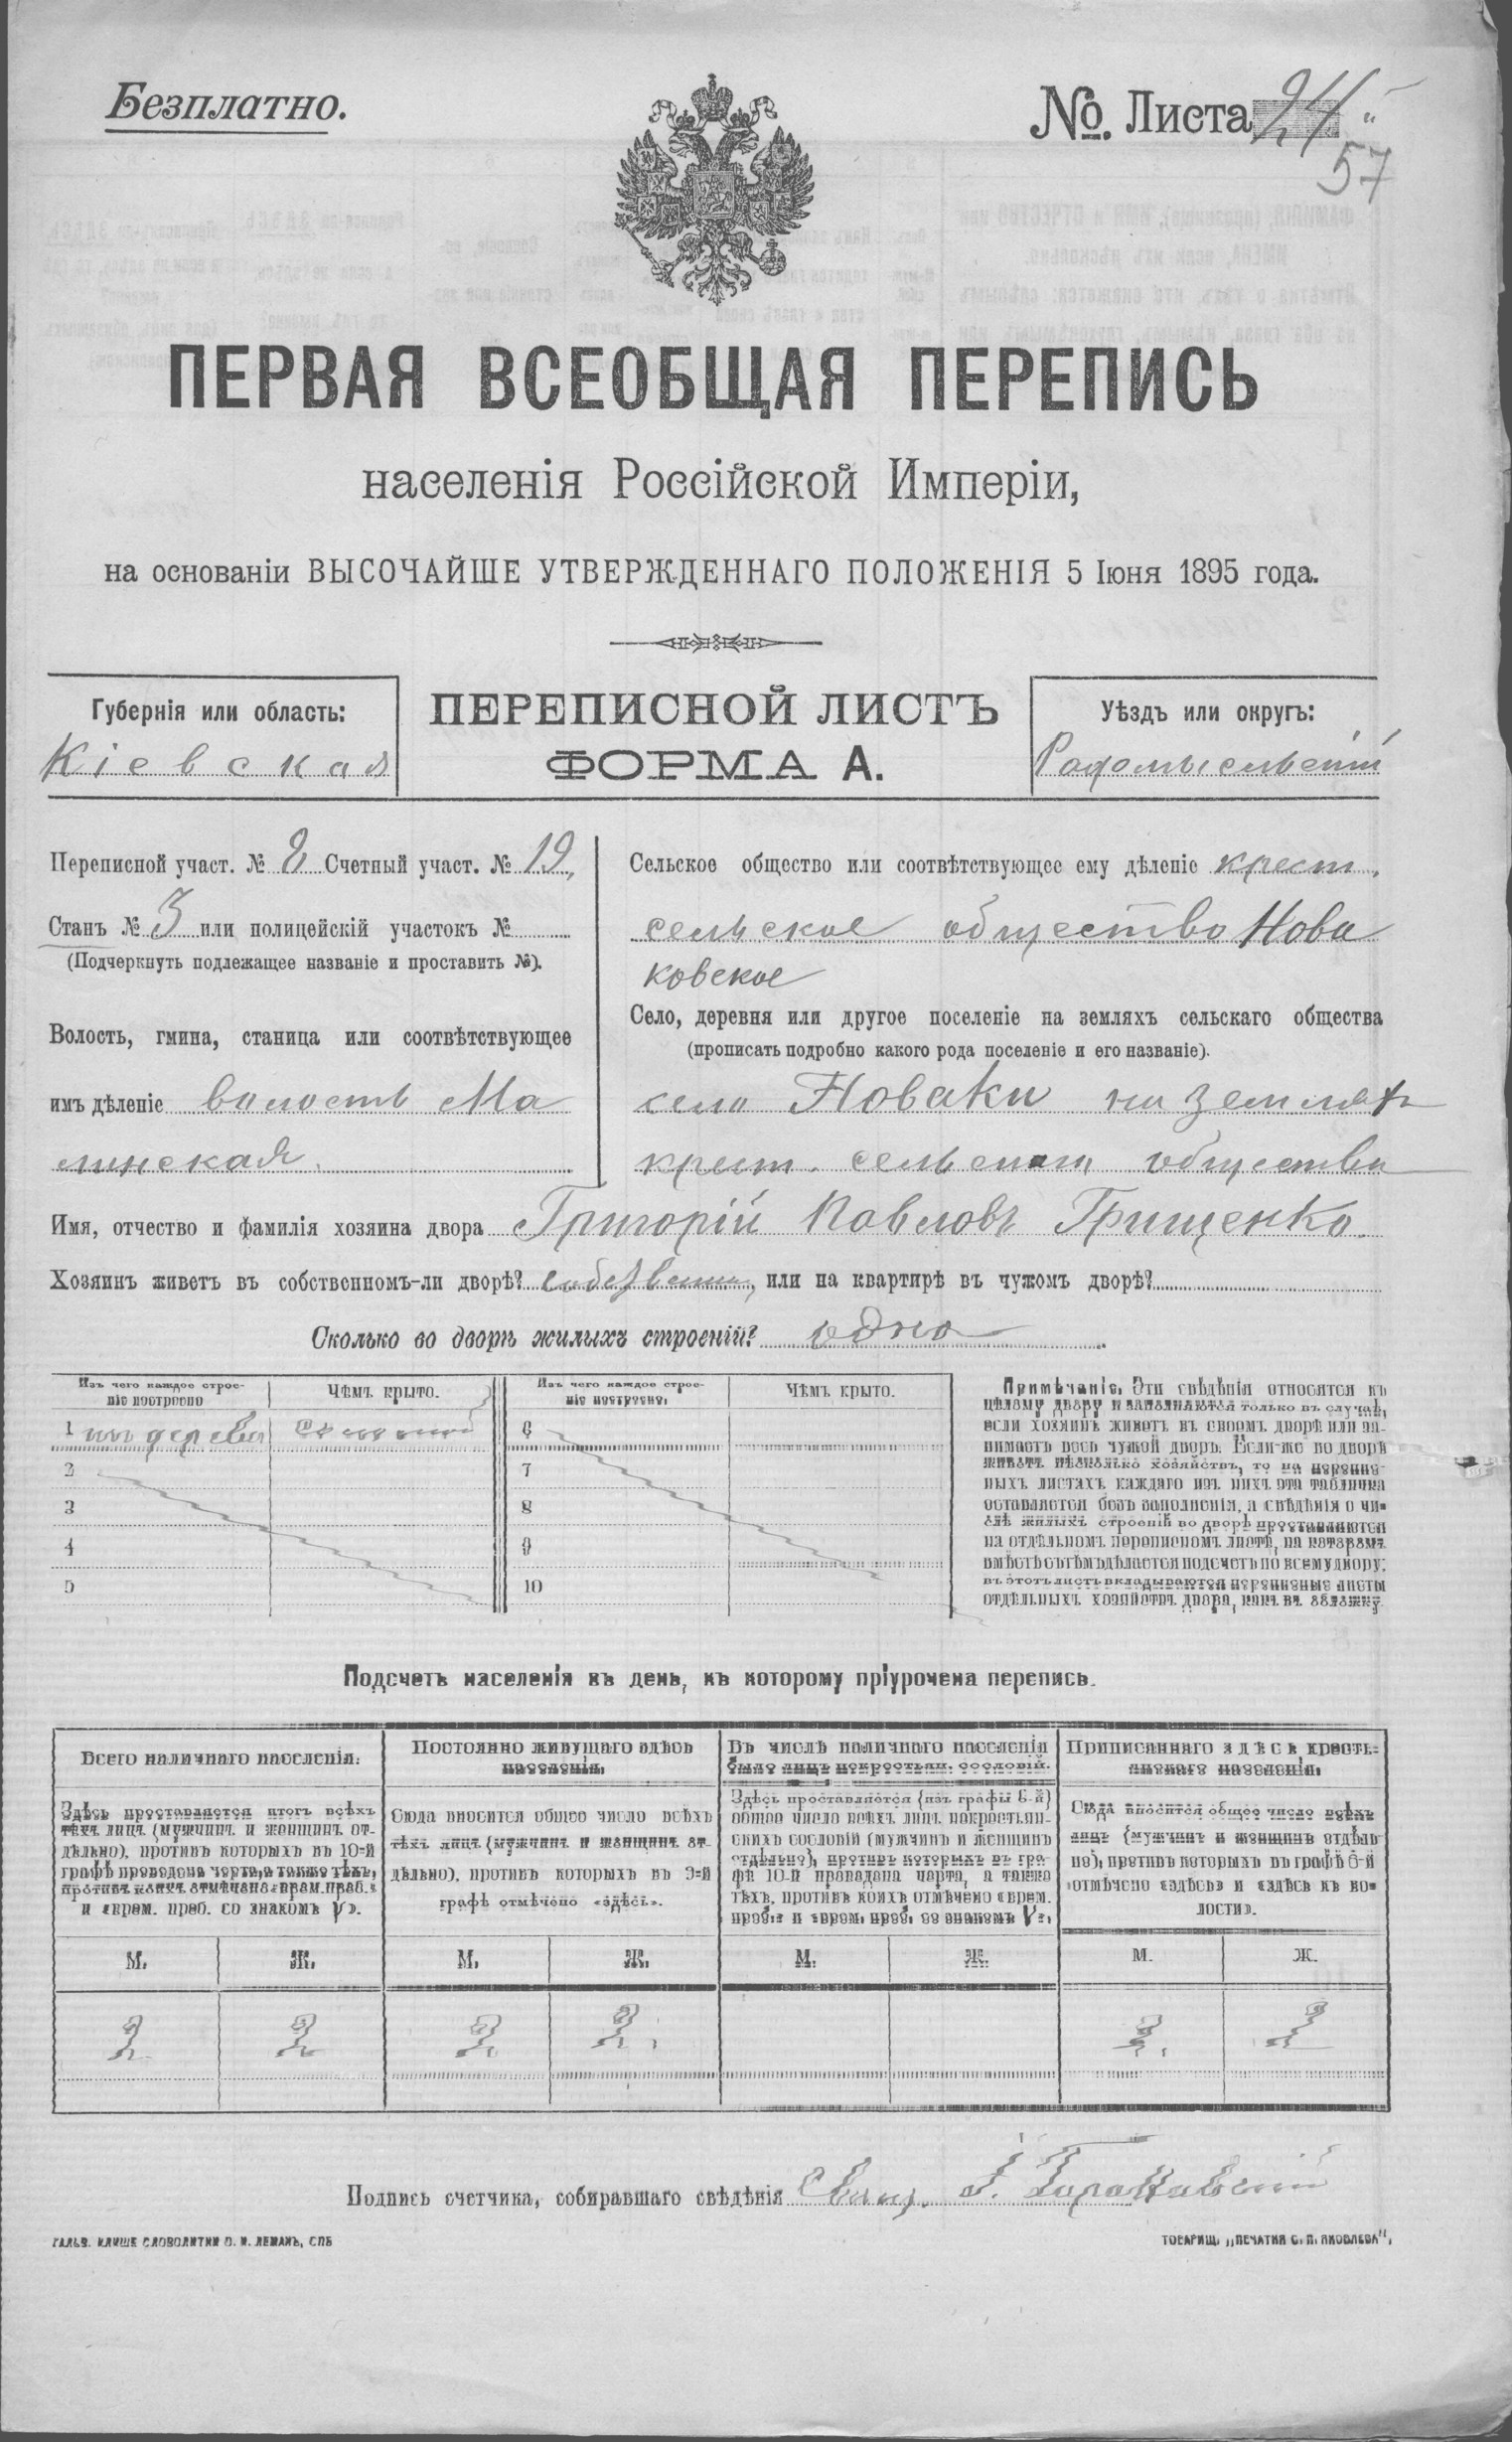 Безплатно.
№. Листа 24
57
ПЕРВАЯ ВСЕОБЩАЯ ПЕРЕПИСЬ
населенія Россійской Имперіи,
на основаніи ВЫСОЧАЙШЕ УТВЕРЖДЕННАГО ПОЛОЖЕНІЯ 5 Іюня 1895 года.
Губернія или область:
Кіевская
ПЕРЕПИСНОЙ ЛИСТЪ
ФОРМА А.
Уѣздъ или округъ:
Радомысльскій
Переписной участ. № 2 Счетный участ. № 19,
Станъ № 3 или полицейскій участокъ №
(Подчеркнуть подлежащее названіе и проставить №).
Волость, гмина, станица или соотвѣтствующее
имъ дѣленіе волость Ма
линская.
Сельское общество или соотвѣтствующее ему дѣленіе крест.
сельское общество Нова
ковское
Село, деревня или другое поселеніе на земляхъ сельскаго общества
(прописать подробно какого рода поселеніе и его названіе).
село Новаки на земляхъ
крест. общества
Имя, отчество и фамилія хозяина двора Григорій Павловъ Грищенко.
Хозяинъ живетъ въ собственномъ-ли дворѣ? или на квартирѣ въ чужомъ дворѣ?
Сколько во дворѣ жилыхъ строеній? одно
Изъ чего каждое строе-
ніе построено
Чѣмъ крыто.
Изъ чего каждое строе-
ніе построено.
Чѣмъ крыто.
1 изъ дерева
2
3
4
5
6
7
8
9
10
Примѣчаніе. Эти свѣдѣнія относятся къ
цѣлому двору и заполняются только въ случаѣ,
если хозяинъ живетъ въ своемъ дворѣ или за-
нимаетъ весь чужой дворъ. Если-же во дворѣ
живетъ нѣсколько хозяйствъ, то на перепис-
ныхъ листахъ каждаго изъ нихъ эта табличка
оставляется безъ заполненія, а свѣдѣнія о чи-
слѣ жилыхъ строеній во дворѣ проставляются
на отдѣльномъ переписномъ листѣ, на которомъ
вмѣстѣ съ тѣмъ дѣлается подсчетъ по всему двору;
въ этотъ листъ вкладываются переписные листы
отдѣльныхъ хозяйствъ двора, какъ въ обложку.
Подсчетъ населенія въ день, къ которому пріурочена перепись.
Всего наличнаго населенія.
Постоянно живущаго здѣсь
населенія.
Въ числѣ наличнаго населенія
было лицъ некрестьян. сословій.
Приписаннаго здѣсь кресть-
янскаго населенія.
Здѣсь проставляется итогъ всѣхъ
тѣхъ лицъ (мужчинъ и женщинъ от-
дѣльно), противъ которыхъ въ 10-й
графѣ проведена черта, а также тѣхъ,
противъ коихъ отмѣчено «врем. преб.»
и «врем. преб. со знакомъ V».
Сюда вносится общее число всѣхъ
тѣхъ лицъ (мужчинъ и женщинъ от-
дѣльно), противъ которыхъ въ 9-й
графѣ отмѣчено «здѣсь».
Здѣсь проставляется (изъ графы 6-й)
общее число всѣхъ лицъ некрестьян-
скихъ сословій (мужчинъ и женщинъ
отдѣльно), противъ которыхъ въ гра-
фѣ 10-й проведена черта, а также
тѣхъ, противъ коихъ отмѣчено «врем.
преб.» и «врем. преб. со знакомъ V».
Сюда вносится общее число всѣхъ
лицъ (мужчинъ и женщинъ отдѣль-
но), противъ которыхъ въ графѣ 8-й
отмѣчено «здѣсь» и «здѣсь къ во-
лости».
М. Ж. М. Ж. М. Ж. М. Ж.
2 2 2 2. 2. 2
Подпись счетчика, собиравшаго свѣдѣнія Свящ. І.
ГАЛЬВ. КЛИШЕ СЛОВОЛИТНИ О. И. ЛЕМАНЪ, СПБ
ТОВАРИЩ. „ПЕЧАТНЯ С. П. ЯКОВЛЕВА",